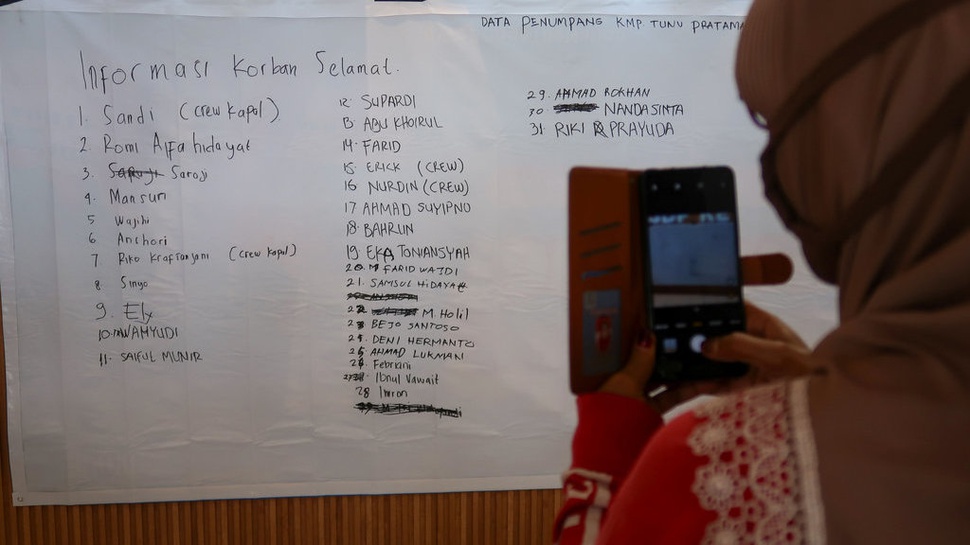 DATA PENUMPANG KMP TUNU PRATAMA
Informasi Korban Selamat.
1. Sandi (crew Kapal)
2. Romi Alfa hidayat
3. Saroji
4. Mansun
5 Wajihi
6 Anchori
7. Riko Krafsanjani (crew Kapal)
8 Sinyo
9. Ely
10. WAHYUDI
11. SAIFUL MUNIR
12 SUPARDI
13 ABU KHOIRUL
14 FARID
15 ERICK (CREW)
16 NURDIN (CREW)
17 AHMAD SUYIPNO
18 BAHRUN
19 EKA TONIANSYAH
20. M FARID WAJDI
21. SAMSUL HIDAYAH
22 M. Holil
23 BEJO SANTOSO
25 DENI HERMANTO
26 AHMAD LUKMAN
26 Febriani
27 Ibnul Vawait
28 Imron
29. AHMAD ROKHAN
30 NANDA SINTA
31. RIKI PRAYUDA